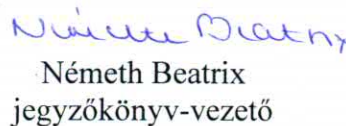 Németh Beatrix
Németh Beatrix
jegyzőkönyv-vezető